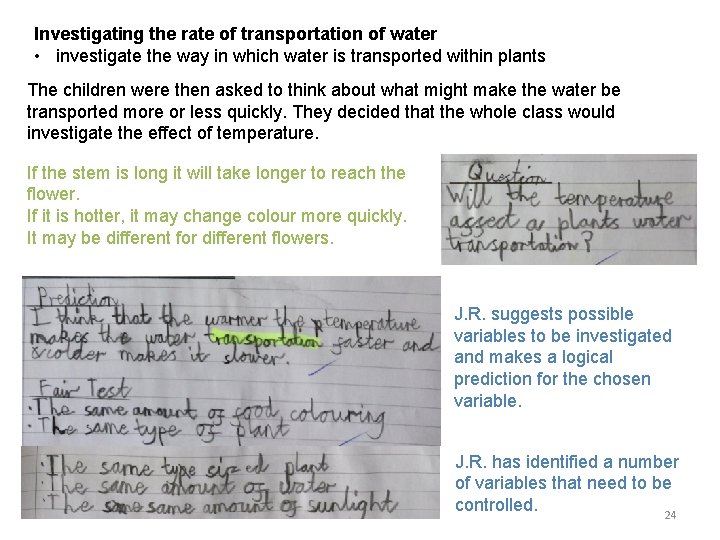 Investigating the rate of transportation of water
• investigate the way in which water is transported within plants
The children were then asked to think about what might make the water be
transported more or less quickly. They decided that the whole class would
investigate the effect of temperature.
If the stem is long it will take longer to reach the
flower.
If it is hotter, it may change colour more quickly.
It may be different for different flowers.
Question
Will the temperature
assect a plants water
transportation?
Prediction
I think that the warmer the temperature
makes the water transportation faster and
colder makes it slower.
Fair Test
· The same amount of food colouring
· The same type of plant
· The same type sized plant
· The same amount of water
· The same amount of sunlight
J.R. suggests possible
variables to be investigated
and makes a logical
prediction for the chosen
variable.
J.R. has identified a number
of variables that need to be
controlled.
24